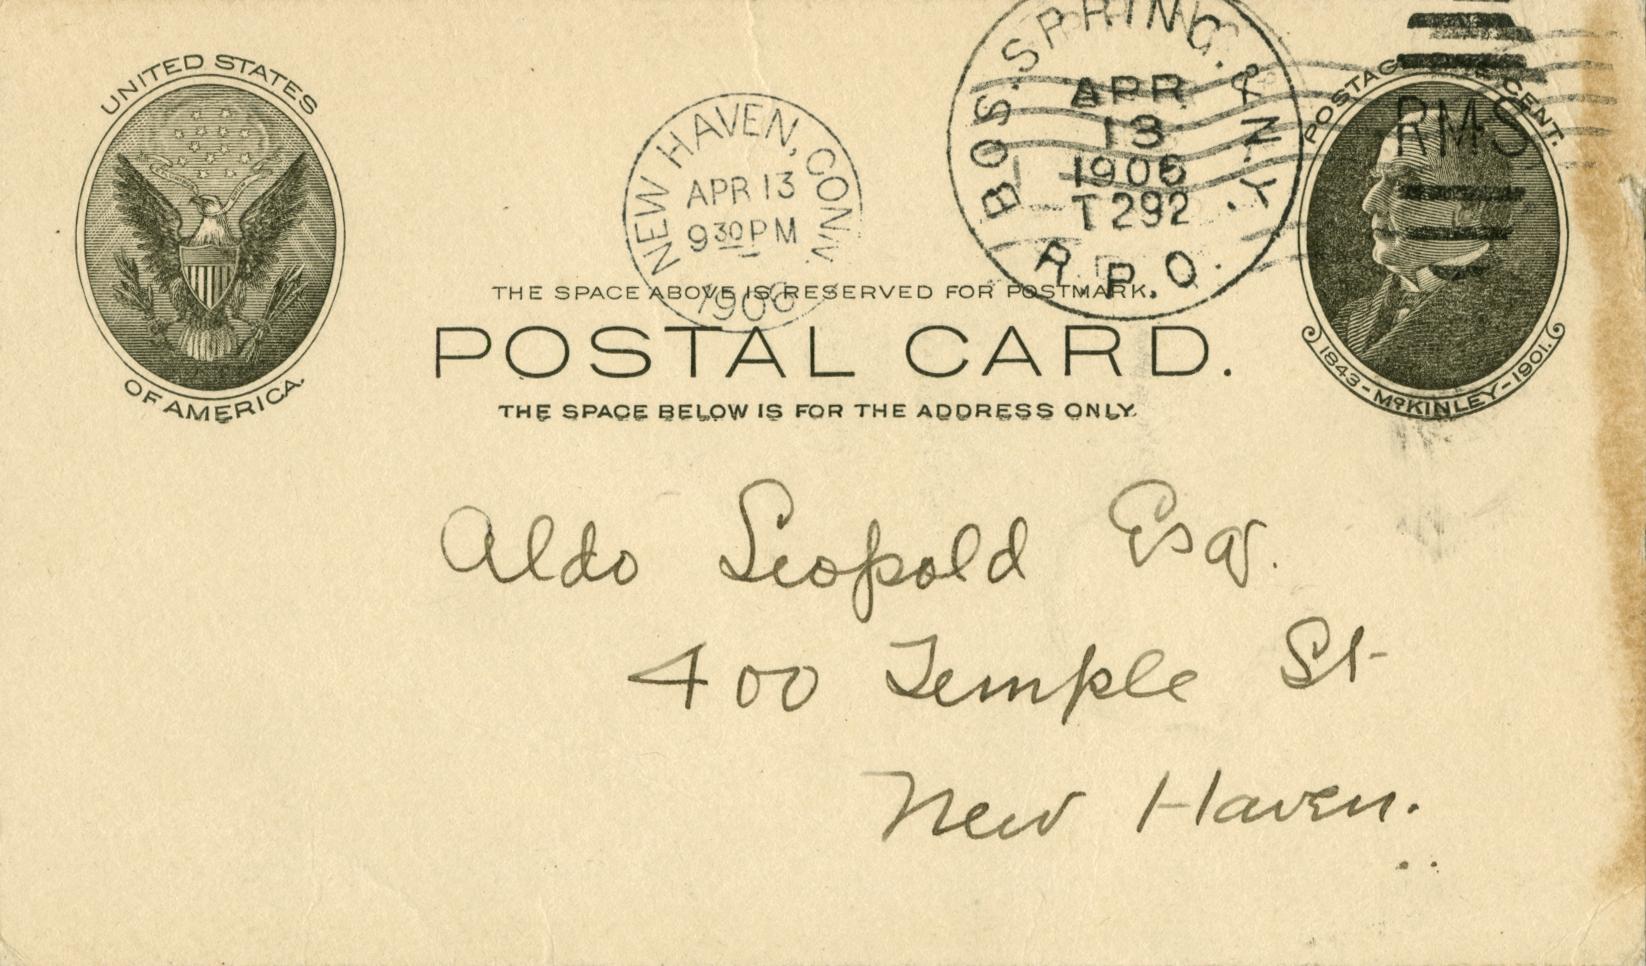 UNITED STATES
OF AMERICA.
NEW HAVEN, CONN.
APR 13
9 30 PM
1906
BOS. SPRING. & N.Y.
APR
13
1906
T 292
R.P.O.
RMS
POSTAGE ONE CENT.
1843-McKINLEY-1901.
THE SPACE ABOVE IS RESERVED FOR POSTMARK.
POSTAL CARD.
THE SPACE BELOW IS FOR THE ADDRESS ONLY.
Aldo Leopold Esq.
400 Temple St
New Haven.